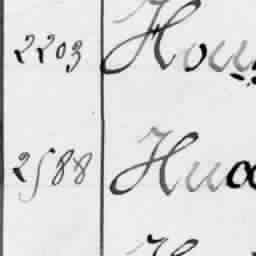 2203 Hou
2588 Hua